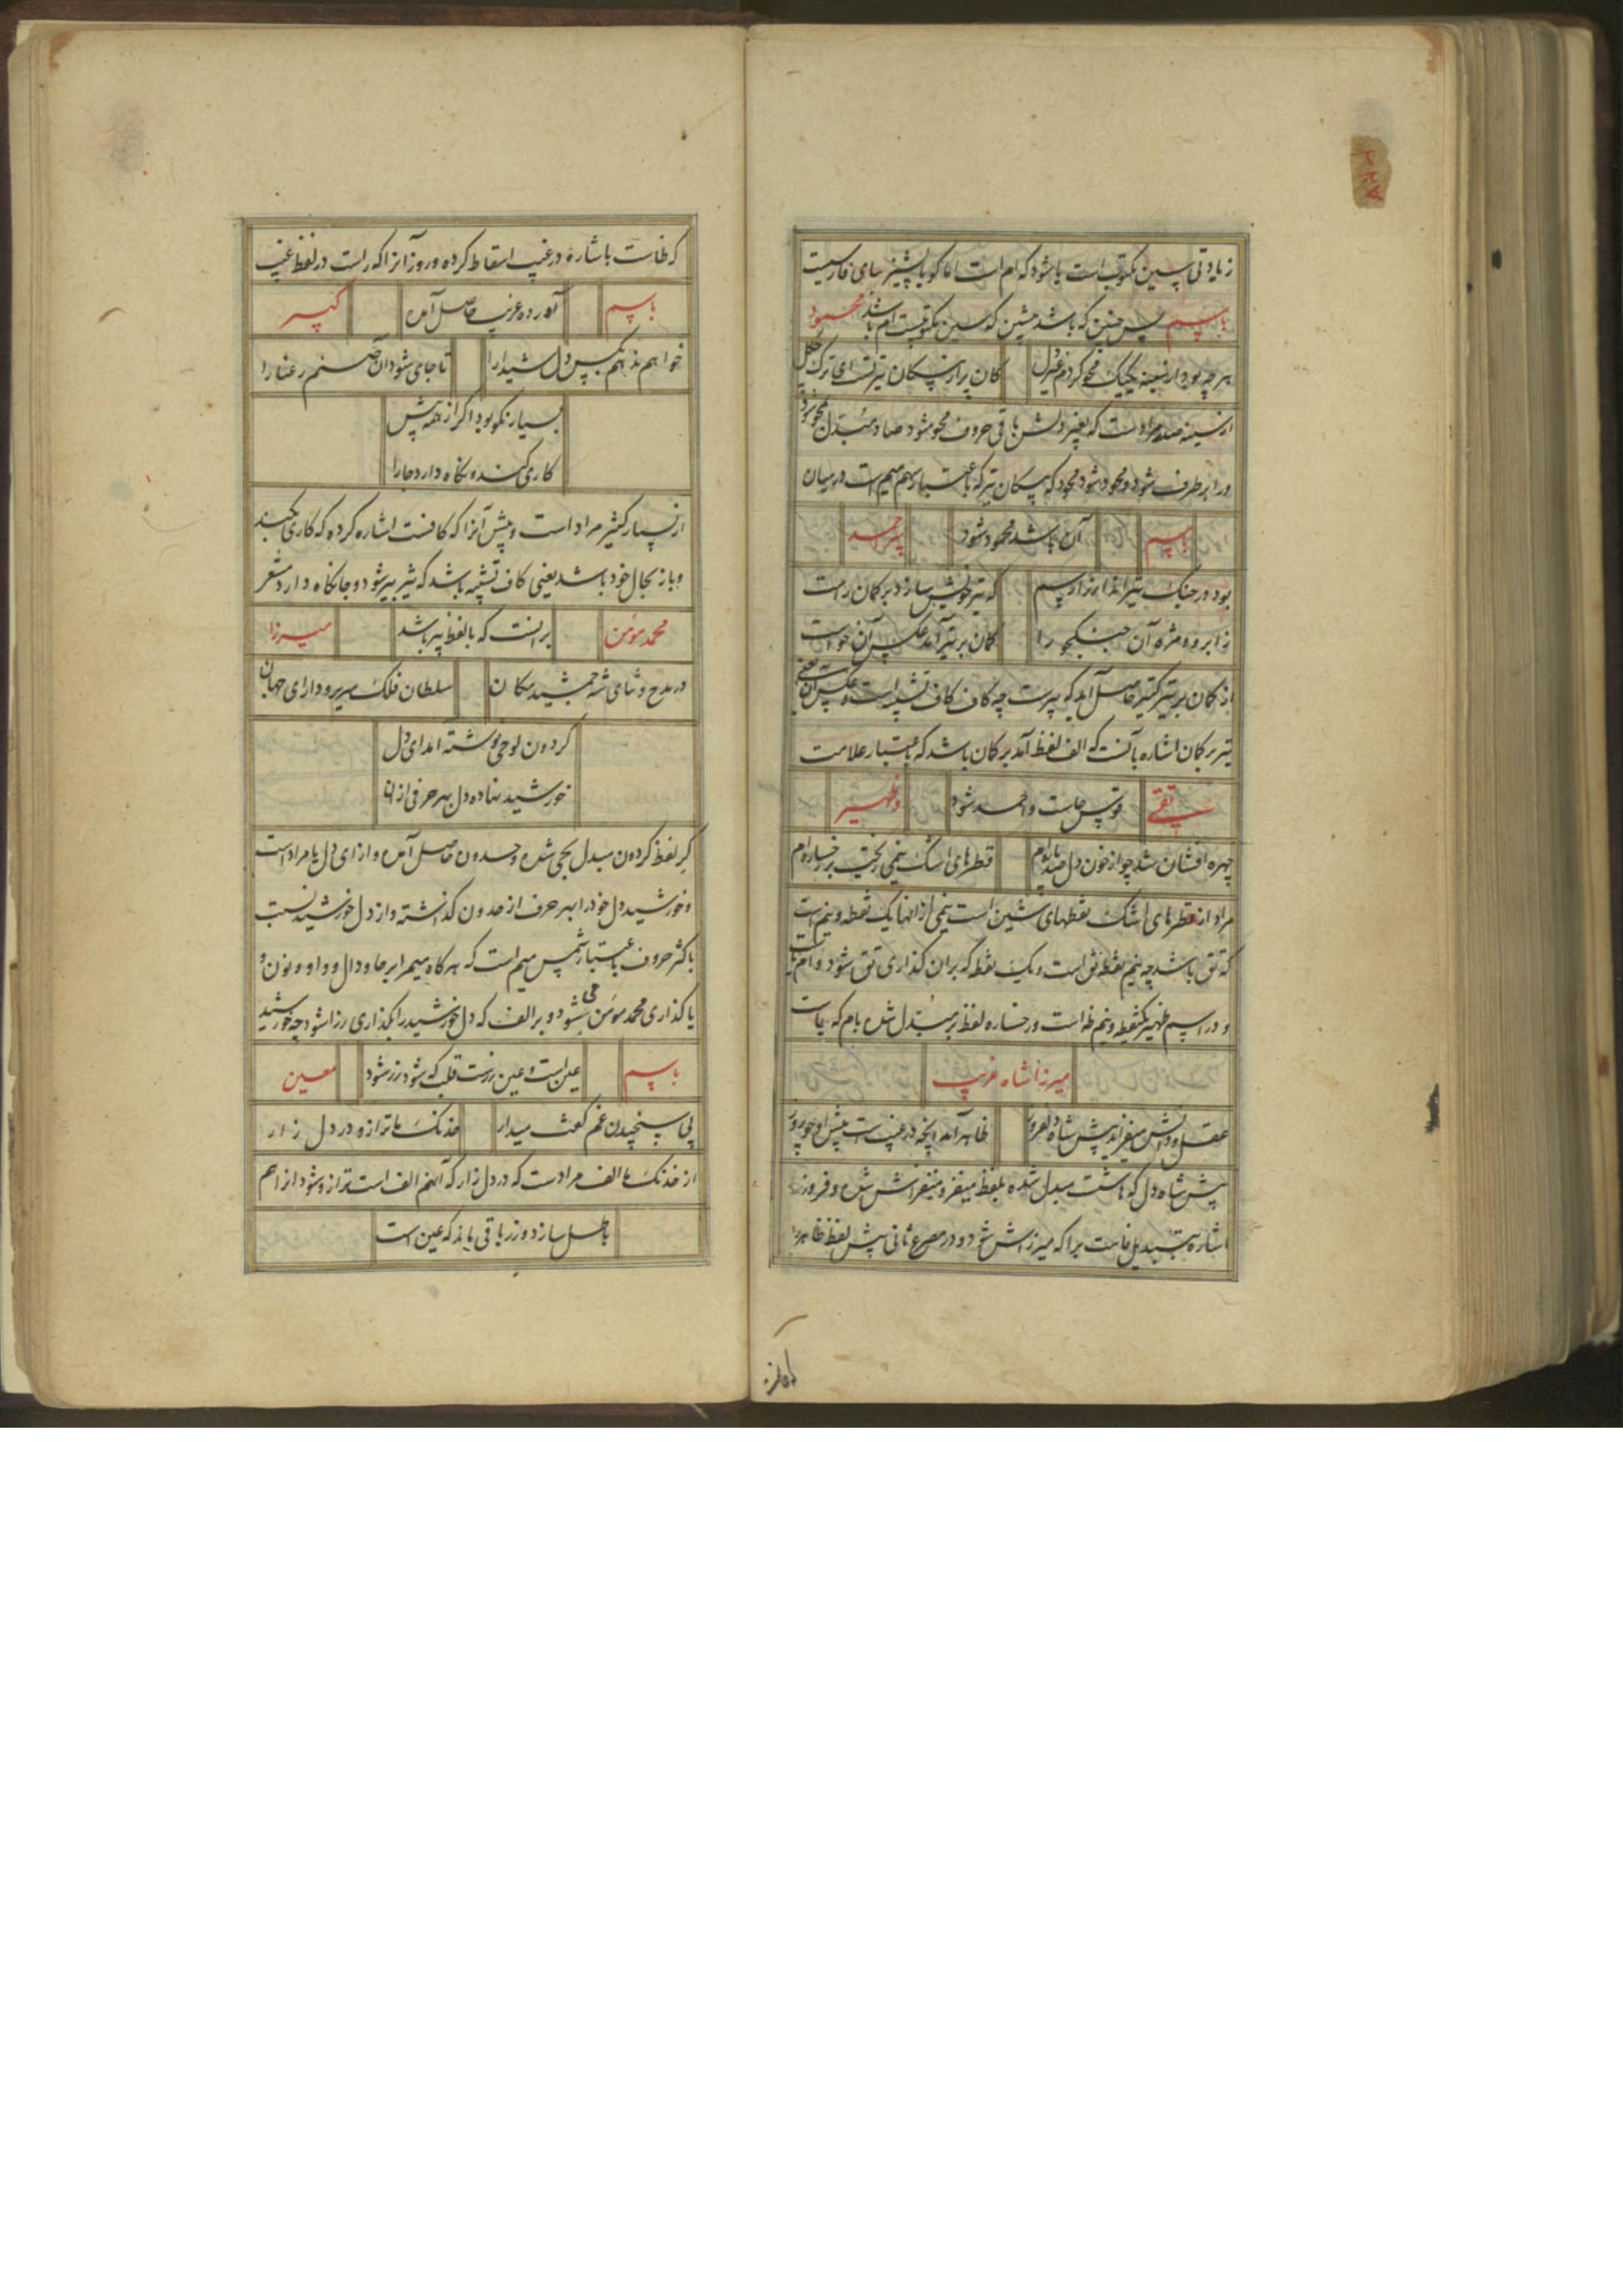 زیادتی سین مکتوب است یا شود که ام است اما کو یا پشیز سای فارسیت
باسم پس چنین که باشد مشین که سین مکتوبست ام باشد محمود
هرچه بود از سینه یکیک محو کردم غیر دل
کان پر از پیکان تیر تست ای ترک چگل
از سینه صدر مرادست که بغیر دلش باقی حروف محو شود صاد مبدل بمحو شود
و را بر طرف شود و محمود شود محمود که پیکان تیر که باعتبار سهم میم است در میان
باسم
آن باشد محمود شود
پیر احمد
بود در جنک تیرانداز را رسم
که تیر خویش سازد بر کمان راست
ز ابرو و مژه آن جنکجو را
کمان بر تیر آمد عکس آن خواست
از کمان بر تیر کتیر حاصل آید که پیرست چه کاف کاف تشبیه است و عکس آن یعنی
تیر بر کمان اشاره بآنست که الف لفظ آمد بر کمان باشد که باعتبار علامت
تقی
قوس حاست و احمد شود
و ظهیر
چهره افشان شد چو از خون دل صد پاره ام
قطرهای اشک نیمی ریخت بر رخساره ام
مراد از قطرهای اشک نقطهای شین است نیمی از انها یک نقطه و نیم است
که تق باشد چه نیم نقطه نق است و یک نقطه که بران کذاری تق شود و ام یاست
و در اسم ظهیر یکنقطه و نیم ظه است و رخساره لفظ بر مبدل شده بام که یاست
میرزا شاه غریب
عقل و دانش میفزاید پیش شاه دلفروز
ظاهر آمد آنچه در غیب است پیش او چو روز
پیش شاه دل که هاست مبدل شده بلفظ میفز و میفز اش شده و فروز
اشاره بتبدیل فاست برا که میرزا ش شود و در مصرع ثانی پیش لفظ ظاهر را
که ظاست باشاره در غیب اسقاط کرده و روز آنرا که راست در لفظ غیب
باسم
آورده غریب حاصل آمده
کبیر
خواهم ندهم بکس دل شیدا را
تا جای شود آن صنم رعنا را
بسیار نکو بود اکر از همه پیش
کاری کند و نکاه دارد جا را
از بسیار کثیر مراد است و پیش آنرا که کافست اشاره کرده که کاری بکند
و باز بحال خود باشد یعنی کاف تشبیه باشد که ثیر ببیر شود و جا نکاه دارد مشعر
محمد مومن
برانست که بالفظ بیر باشد
میرزا
در مدح و ثنای شه جمشید مکان
سلطان فلک سریر و دارای جهان
کردون لوحی نوشته امد ای دل
خورشید نهاده دل بهر حرفی ازان
کر لفظ کردون مبدل بحی شده و حیدون حاصل آمده و از ای دل یا مراد است
و خورشید دل خود را بهر حرف از حدون کذاشته و از دل خورشید نسبت
باکثر حروف باعتبار شمس میم است که هر کاه میم را بر حا و دال و واو و نون و
یا کذاری محمد مومن می شود و بر الف که دل خورشید را بکذاری رزا شود چه خورشید
باسم
عین است و عین زرست قلب که شود رز شود
معین
پی سنجیدن غم کفت میدار
خدنک ما ترازو در دل زار
از خدنک ما الف مرادست که در دل زار که آنهم الف است ترازو شود از هم
باطل سازد و زر باقی ماند که عین است